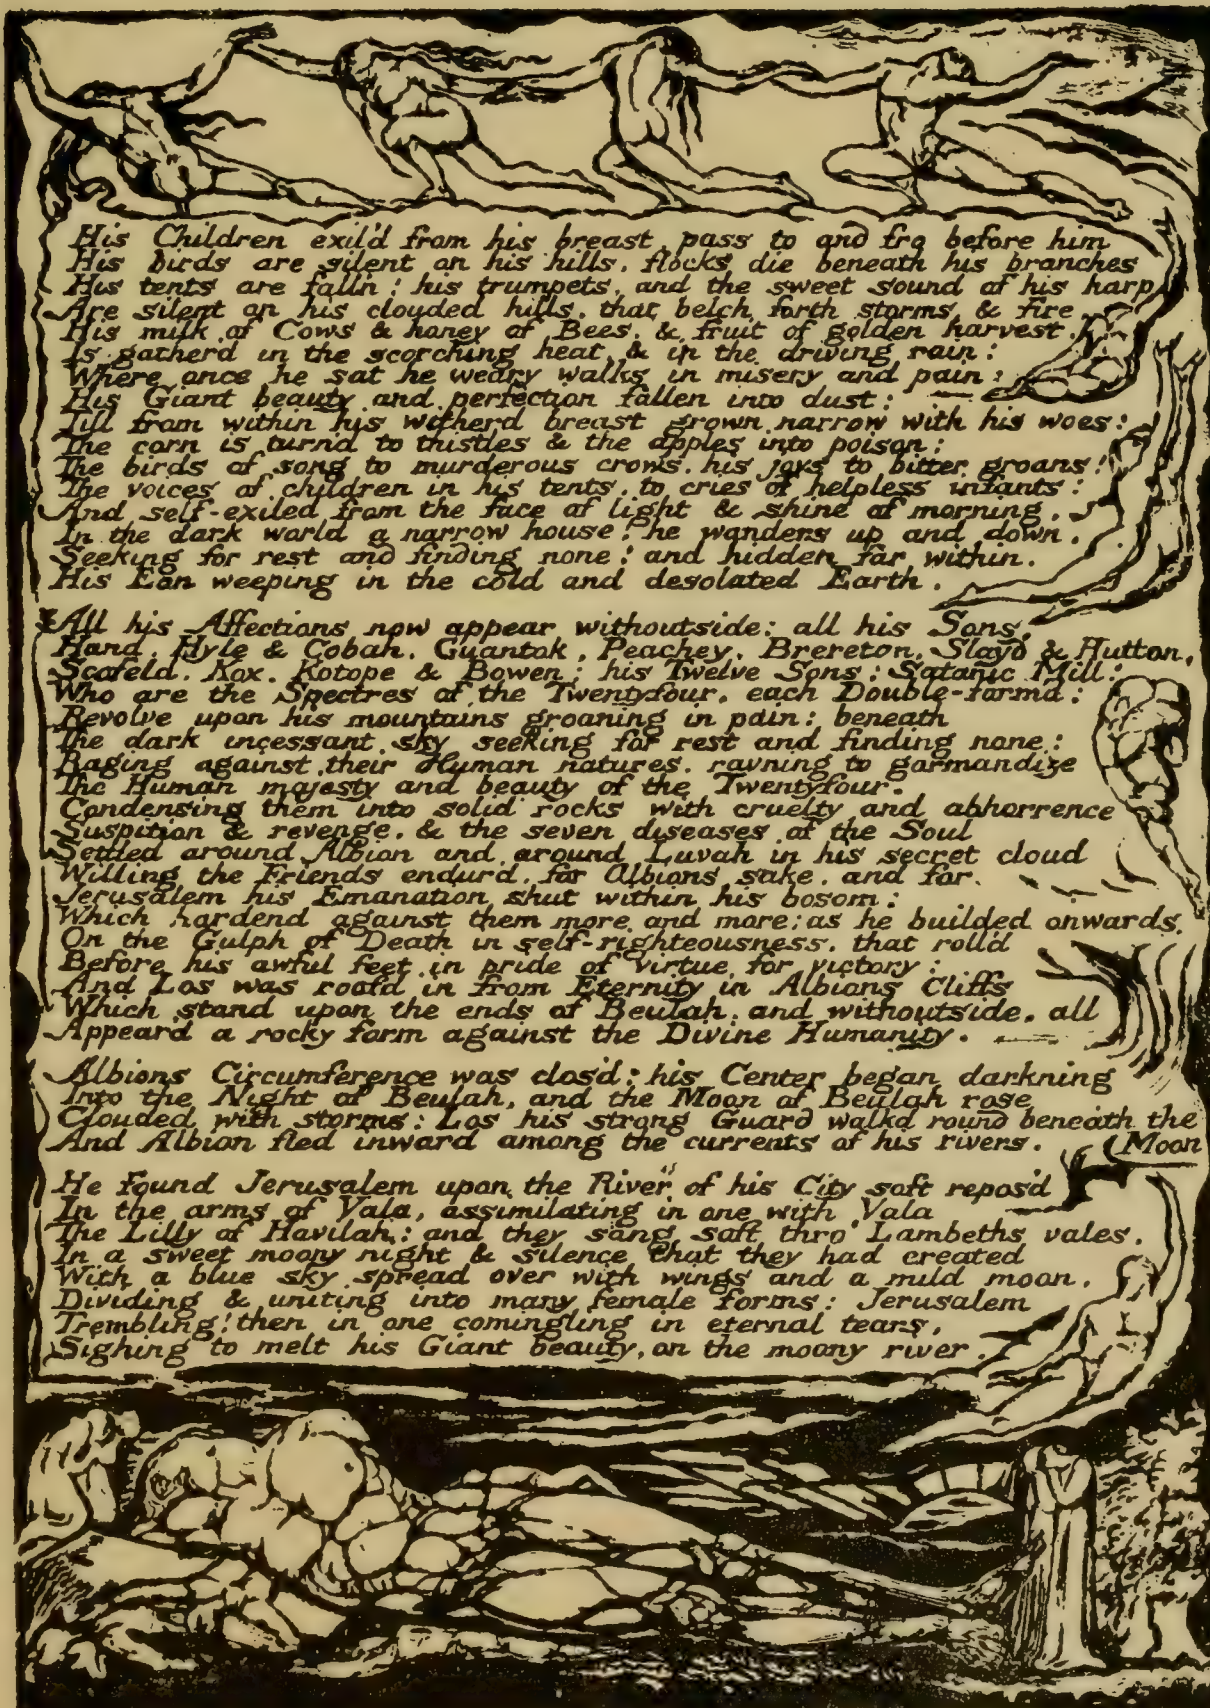 His Children exil'd from his breast pass to and fro before him
His birds are silent on his hills, flocks die beneath his branches
His tents are fall'n: his trumpets, and the sweet sound of his harp
Are silent on his clouded hills, that belch forth storms & fire.
His milk of Cows & honey of Bees, & fruit of golden harvest,
Is gatherd in the scorching heat, & in the driving rain:
Where once he sat he weary walks in misery and pain:
His Giant beauty and perfection fallen into dust:
Till from within his witherd breast grown narrow with his woes:
The corn is turn'd to thistles & the apples into poison:
The birds of song to murderous crows, his joys to bitter groans!
The voices of children in his tents, to cries of helpless infants:
And self-exiled from the face of light & shine of morning,
In the dark world a narrow house! he wanders up and down,
Seeking for rest and finding none! and hidden far within,
His Eon weeping in the cold and desolated Earth.
All his Affections now appear withoutside: all his Sons,
Hand, Hyle & Coban, Guantok, Peachey, Brereton, Slayd & Hutton,
Scofeld, Kox, Kotope & Bowen; his Twelve Sons: Satanic Mill:
Who are the Spectres of the Twentyfour, each Double-form'd:
Revolve upon his mountains groaning in pain: beneath
The dark incessant sky seeking for rest and finding none:
Raging against their Human natures, ravning to gormandize
The Human majesty and beauty of the Twentyfour.
Condensing them into solid rocks with cruelty and abhorrence
Suspition & revenge, & the seven diseases of the Soul
Settled around Albion and around Luvah in his secret cloud
Willing the Friends endur'd, for Albions sake, and for
Jerusalem his Emanation shut within his bosom;
Which harden'd against them more and more; as he builded onwards
On the Gulph of Death in self-righteousness, that roll'd
Before his awful feet in pride of virtue for victory:
And Los was roof'd in from Eternity in Albions Cliffs
Which stand upon the ends of Beulah, and withoutside, all
Appear'd a rocky form against the Divine Humanity.
Albions Circumference was clos'd: his Center began darkning
Into the Night of Beulah, and the Moon of Beulah rose
Clouded with storms: Los his strong Guard walkd round beneath the
Moon
And Albion fled inward among the currents of his rivers.
He found Jerusalem upon the River of his City soft repos'd
In the arms of Vala, assimilating in one with Vala
The Lilly of Havilah: and they sang soft thro' Lambeths vales,
In a sweet moony night & silence that they had created
With a blue sky spread over with wings and a mild moon,
Dividing & uniting into many female forms: Jerusalem
Trembling! then in one comingling in eternal tears,
Sighing to melt his Giant beauty, on the moony river.